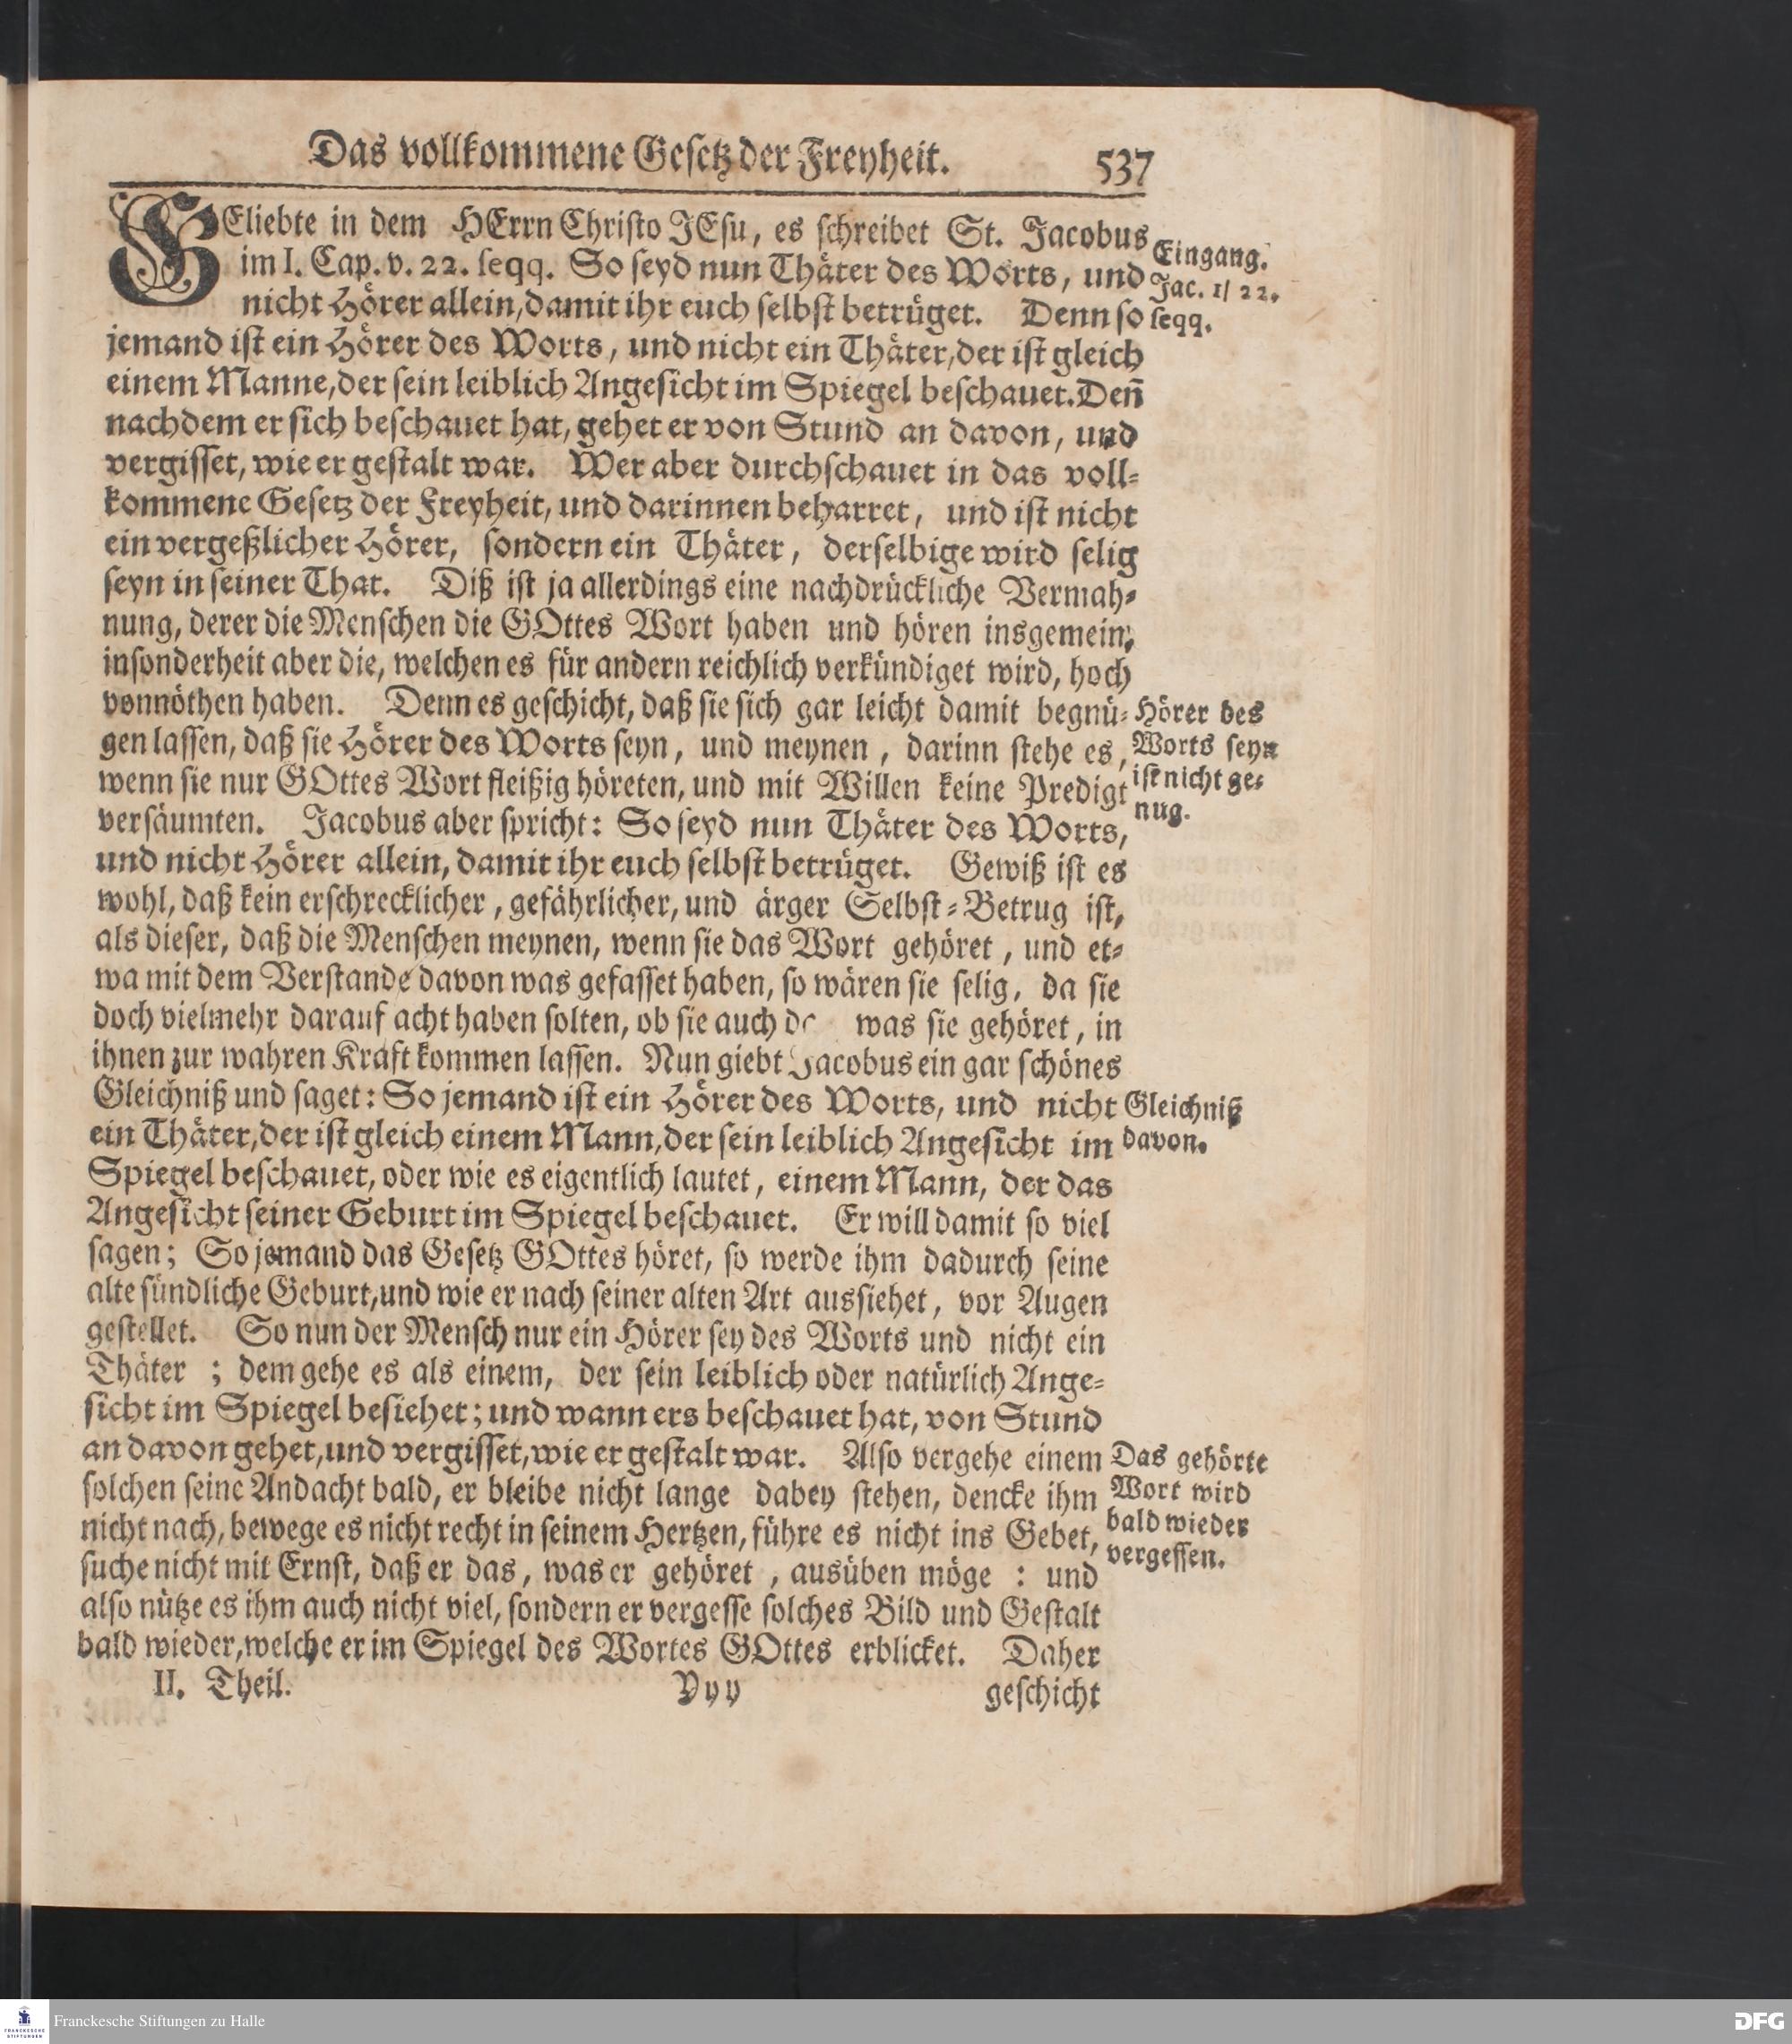 Das vollkommene Gesetz der Freyheit. 537
GEliebte in dem HErrn Christo JEsu, es schreibet St. Jacobus
im I. Cap. v. 22. seqq. So seyd nun Thäter des Worts, und
nicht Hörer allein, damit ihr euch selbst betrüget. Denn so
Eingang.
Jac. 1/ 22.
seqq.
jemand ist ein Hörer des Worts, und nicht ein Thäter, der ist gleich
einem Manne, der sein leiblich Angesicht im Spiegel beschauet. Den̄
nachdem er sich beschauet hat, gehet er von Stund an davon, und
vergisset, wie er gestalt war. Wer aber durchschauet in das voll-
kommene Gesetz der Freyheit, und darinnen beharret, und ist nicht
ein vergeßlicher Hörer, sondern ein Thäter, derselbige wird selig
seyn in seiner That. Diß ist ja allerdings eine nachdrückliche Vermah-
nung, derer die Menschen die GOttes Wort haben und hören insgemein;
insonderheit aber die, welchen es für andern reichlich verkündiget wird, hoch
vonnöthen haben. Denn es geschicht, daß sie sich gar leicht damit begnü-
gen lassen, daß sie Hörer des Worts seyn, und meynen, darinn stehe es,
wenn sie nur GOttes Wort fleißig höreten, und mit Willen keine Predigt
versäumten. Jacobus aber spricht: So seyd nun Thäter des Worts,
Hörer des
Worts seyn
ist nicht ge-
nug.
und nicht Hörer allein, damit ihr euch selbst betrüget. Gewiß ist es
wohl, daß kein erschrecklicher, gefährlicher, und ärger Selbst-Betrug ist,
als dieser, daß die Menschen meynen, wenn sie das Wort gehöret, und et-
wa mit dem Verstande davon was gefasset haben, so wären sie selig, da sie
doch vielmehr darauf acht haben solten, ob sie auch was sie gehöret, in
ihnen zur wahren Kraft kommen lassen. Nun giebt Jacobus ein gar schönes
Gleichniß und saget: So jemand ist ein Hörer des Worts, und nicht
ein Thäter, der ist gleich einem Mann, der sein leiblich Angesicht im
Gleichniß
davon.
Spiegel beschauet, oder wie es eigentlich lautet, einem Mann, der das
Angesicht seiner Geburt im Spiegel beschauet. Er will damit so viel
sagen; So jemand das Gesetz GOttes höret, so werde ihm dadurch seine
alte sündliche Geburt, und wie er nach seiner alten Art aussiehet, vor Augen
gestellet. So nun der Mensch nur ein Hörer sey des Worts und nicht ein
Thäter ; dem gehe es als einem, der sein leiblich oder natürlich Ange-
sicht im Spiegel besiehet; und wann ers beschauet hat, von Stund
an davon gehet, und vergisset, wie er gestalt war. Also vergehe einem
solchen seine Andacht bald, er bleibe nicht lange dabey stehen, dencke ihm
nicht nach, bewege es nicht recht in seinem Hertzen, führe es nicht ins Gebet,
suche nicht mit Ernst, daß er das, was er gehöret, ausüben möge : und
Das gehörte
Wort wird
bald wieder
vergessen.
also nütze es ihm auch nicht viel, sondern er vergesse solches Bild und Gestalt
bald wieder, welche er im Spiegel des Wortes GOttes erblicket. Daher
II. Theil. Yyy geschicht
Franckesche Stiftungen zu Halle
FRANCKESCHE STIFTUNGEN
DFG